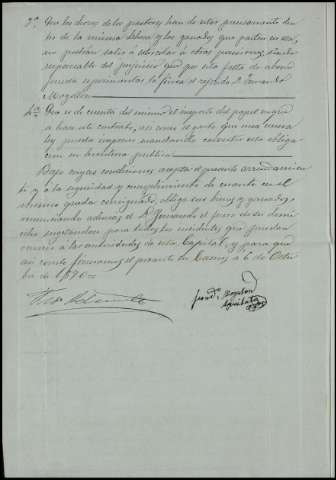 3ª Que los lores de los pastores han de estar precisamente den
tro de la misma dehesa y los ganados que pasten en ella,
no podrán salir á abrevar á otras posesiones, siendo
responsable del perjuicio que por esta falta de abono
pueda experimentar la finca el referido D. Fernando
Mogollon.
4ª Que es de cuenta del mismo el importe del papel invertido
á hacer este contrato, así como el gasto que una tercera
ley pueda imponer mandando convertir esta obliga
cion en escritura pública.
Bajo cuyas condiciones acepta el presente arrendamien
to y á la seguridad y cumplimiento de cuanto en él
mismo queda consignado, obliga sus bienes y ganados,
renunciando ademas el D. Fernando el fuero de su domi
cilio sujetandose para todos los incidentes que puedan
ocurrir á las autoridades de esta Capital, y para que
así conste firmamos el presente en Cáceres á 6 de Octu
bre de 1890=
Fernando Mogollon